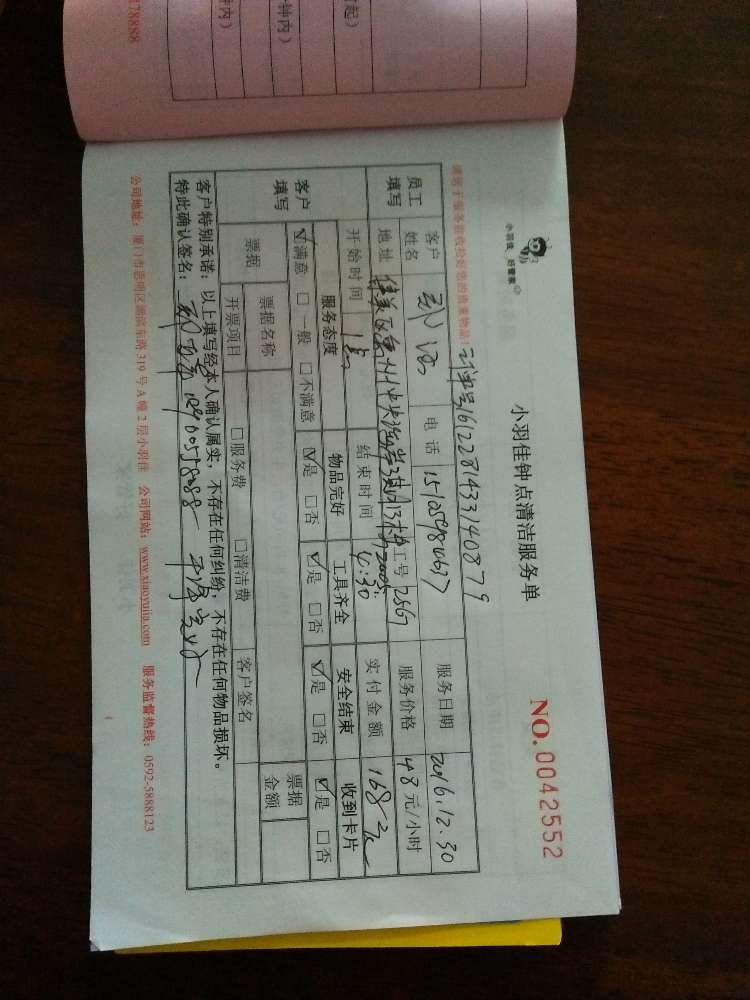 小羽佳钟点清洁服务单
NO. 0042552
小羽佳 好管家
请您于服务前收拾好您的贵重物品!
订单号1612281433140879
员工填写
客户姓名
电话
服务日期 2016.12.30
地址
工号 2567
服务价格 48 元/小时
开始时间
结束时间 4:30
实付金额 168元
客户填写
服务态度 物品完好 工具齐全 安全结束 收到卡片
☑满意 □一般 □不满意 ☑是 □否 ☑是 □否 ☑是 □否 ☑是 □否
票据 票据名称 票据金额
开票项目 □服务费 □清洁费 客户签名
客户特别承诺:以上填写经本人确认属实,不存在任何纠纷,不存在任何物品损坏。
特此确认签名:
公司地址:厦门市思明区湖滨东路 319 号 A 幢 2 层小羽佳 公司网站:www.xiaoyujia.com 服务监督热线:0592-5888123
钟内)
起)
钟内)
178888